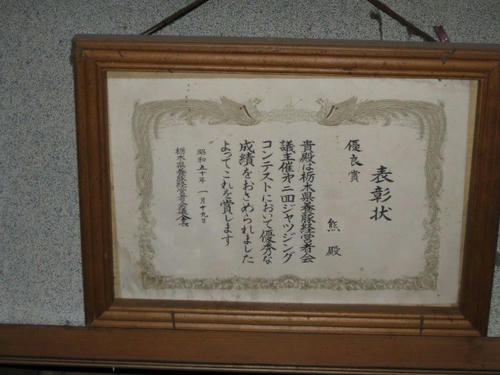 表彰状
優良賞
熊 殿
貴殿は栃木県養豚経営者会
議主催第二回ジャッジング
コンテストにおいて優秀な
成績をおさめられました
よってこれを賞します
昭和五十年一月十九日
栃木県養豚経営者会議会長